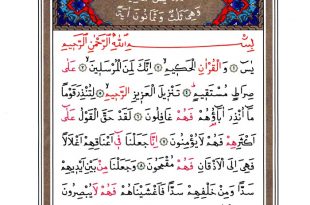 وَهِيَ ثَلَاثٌ وَثَمَانُونَ آيَةً
بِسْمِ اللّٰهِ الرَّحْمٰنِ الرَّحِيمِ
يٰسٓ ۞ وَالْقُرْاٰنِ الْحَكِيمِ ۞ اِنَّكَ لَمِنَ الْمُرْسَلِينَ ۞ عَلٰى
صِرَاطٍ مُسْتَقِيمٍ ۞ تَنْزِيلَ الْعَزِيزِ الرَّحِيمِ ۞ لِتُنْذِرَ قَوْمًا
مَٓا اُنْذِرَ اٰبَٓاؤُهُمْ فَهُمْ غَافِلُونَ ۞ لَقَدْ حَقَّ الْقَوْلُ عَلٰٓى
اَكْثَرِهِمْ فَهُمْ لَا يُؤْمِنُونَ ۞ اِنَّا جَعَلْنَا فِٓى اَعْنَاقِهِمْ اَغْلَالًا
فَهِيَ اِلَى الْاَذْقَانِ فَهُمْ مُقْمَحُونَ ۞ وَجَعَلْنَا مِنْ بَيْنِ اَيْدِيهِمْ
سَدًّا وَمِنْ خَلْفِهِمْ سَدًّا فَاَغْشَيْنَاهُمْ فَهُمْ لَا يُبْصِرُونَ